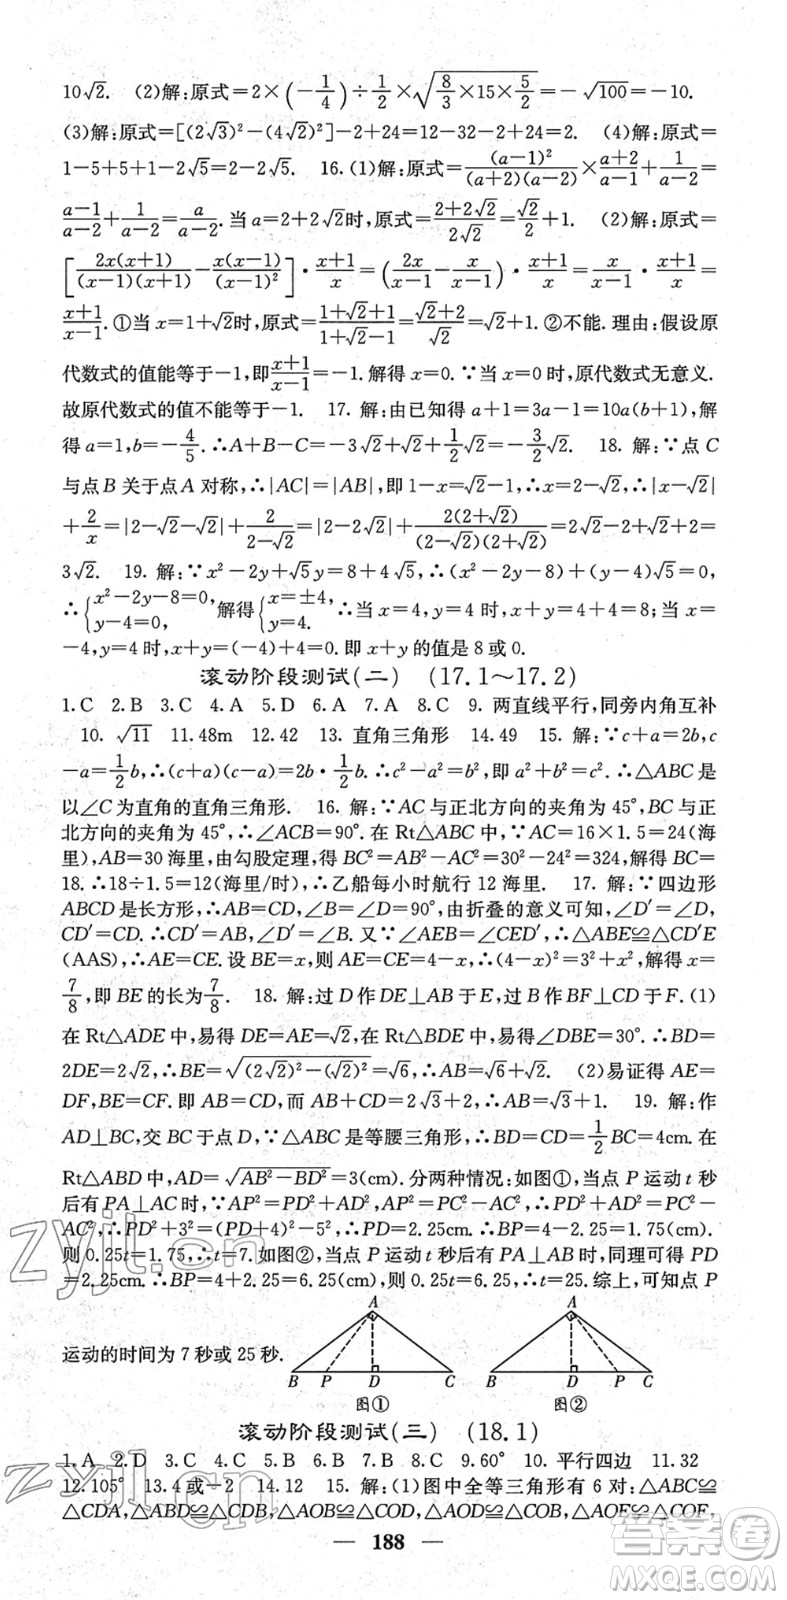 10√2.　(2)解:原式=2×(-1/4)÷1/2×√(8/3×15×5/2)=-√100=-10.
(3)解:原式=[(2√3)²-(4√2)²]-2+24=12-32-2+24=2.　(4)解:原式=
1-5+5+1-2√5=2-2√5.　16.(1)解:原式=(a-1)²/(a+2)(a-2)×a+2/a-1+1/a-2=
a-1/a-2+1/a-2=a/a-2.当a=2+2√2时,原式=2+2√2/2√2=√2/2+1.　(2)解:原式=
[2x(x+1)/(x-1)(x+1)-x(x-1)/(x-1)²]·x+1/x=(2x/x-1-x/x-1)·x+1/x=x/x-1·x+1/x=
x+1/x-1.①当x=1+√2时,原式=1+√2+1/1+√2-1=√2+2/√2=√2+1.②不能.理由:假设原
代数式的值能等于-1,即x+1/x-1=-1.解得x=0.∵当x=0时,原代数式无意义.
故原代数式的值不能等于-1.　17. 解:由已知得a+1=3a-1=10a(b+1),解
得a=1,b=-4/5.∴A+B-C=-3√2+√2+1/2√2=-3/2√2.　18. 解:∵点C
与点B关于点A对称,∴|AC|=|AB|,即1-x=√2-1,∴x=2-√2,∴|x-√2|
+2/x=|2-√2-√2|+2/2-√2=|2-2√2|+2(2+√2)/(2-√2)(2+√2)=2√2-2+√2+2=
3√2.　19. 解:∵x²-2y+√5y=8+4√5,∴(x²-2y-8)+(y-4)√5=0,
∴{x²-2y-8=0, y-4=0, 解得{x=±4, y=4. ∴当x=4,y=4时,x+y=4+4=8;当x=
-4,y=4时,x+y=(-4)+4=0.即x+y的值是8或0.
滚动阶段测试(二)　(17.1～17.2)
1.C　2.B　3.C　4.A　5.D　6.A　7.A　8.C　9. 两直线平行,同旁内角互补
10. √11　11.48m　12.42　13. 直角三角形　14.49　15. 解:∵c+a=2b,c
-a=1/2b,∴(c+a)(c-a)=2b·1/2b.∴c²-a²=b²,∴c²=a²+b².∴△ABC是
以∠C为直角的直角三角形.　16. 解:∵AC与正北方向的夹角为45°,BC与正
北方向的夹角为45°,∴∠ACB=90°.在Rt△ABC中,∵AC=16×1.5=24(海
里),AB=30海里,由勾股定理,得BC²=AB²-AC²=30²-24²=324,解得BC=
18.∴18÷1.5=12(海里/时),∴乙船每小时航行12海里.　17. 解:∵四边形
ABCD是长方形,∴AB=CD,∠B=∠D=90°,由折叠的意义可知,∠D′=∠D,
CD′=CD.∴CD′=AB,∠D′=∠B.又∵∠AEB=∠CED′,∴△AEB≌△CD′E
(AAS),∴AE=CE.设BE=x,则AE=CE=4-x,∴(4-x)²=3²+x²,解得x=
7/8,即BE的长为7/8.　18. 解:过D作DE⊥AB于E,过B作BF⊥CD于F.(1)
在Rt△ADE中,易得DE=AE=√2,在Rt△BDE中,易得∠DBE=30°.∴BD=
2DE=2√2,∴BE=√((2√2)²-(√2)²)=√6,∴AB=√6+√2.　(2)易证得AE=
DF,BE=CF.即AB=CD,而AB+CD=2√3+2,∴AB=√3+1.　19. 解:作
AD⊥BC,交BC于点D,∵△ABC是等腰三角形,∴BD=CD=1/2BC=4cm.在
Rt△ABD中,AD=√(AB²-BD²)=3(cm).分两种情况:如图①,当点P运动t秒
后有PA⊥AC时,∵AP²=PD²+AD²,AP²=PC²-AC²,∴PD²+AD²=PC²-
AC²,∴PD²+3²=(PD+4)²-5²,∴PD=2.25cm.∴BP=4-2.25=1.75(cm).
则0.25t=1.75,∴t=7.如图②,当点P运动t秒后有PA⊥AB时,同理可得PD
=2.25cm.∴BP=4+2.25=6.25(cm),则0.25t=6.25,∴t=25.综上,可知点P
运动的时间为7秒或25秒.
A　A
B　P　D　C　B　D　P　C
图①　图②
滚动阶段测试(三)　(18.1)
1.A　2.D　3.C　4.C　5.D　6.B　7.B　8.C　9.60°　10. 平行四边　11.32
12.105°　13.4或-2　14.12　15. 解:(1)图中全等三角形有6对:△ABC≌
△CDA,△ABD≌△CDB,△AOB≌△COD,△AOD≌△COB,△AOE≌△COF,
— 188 —
zyjl.cn
zyjl.cn
答案圈
MXQE.COM